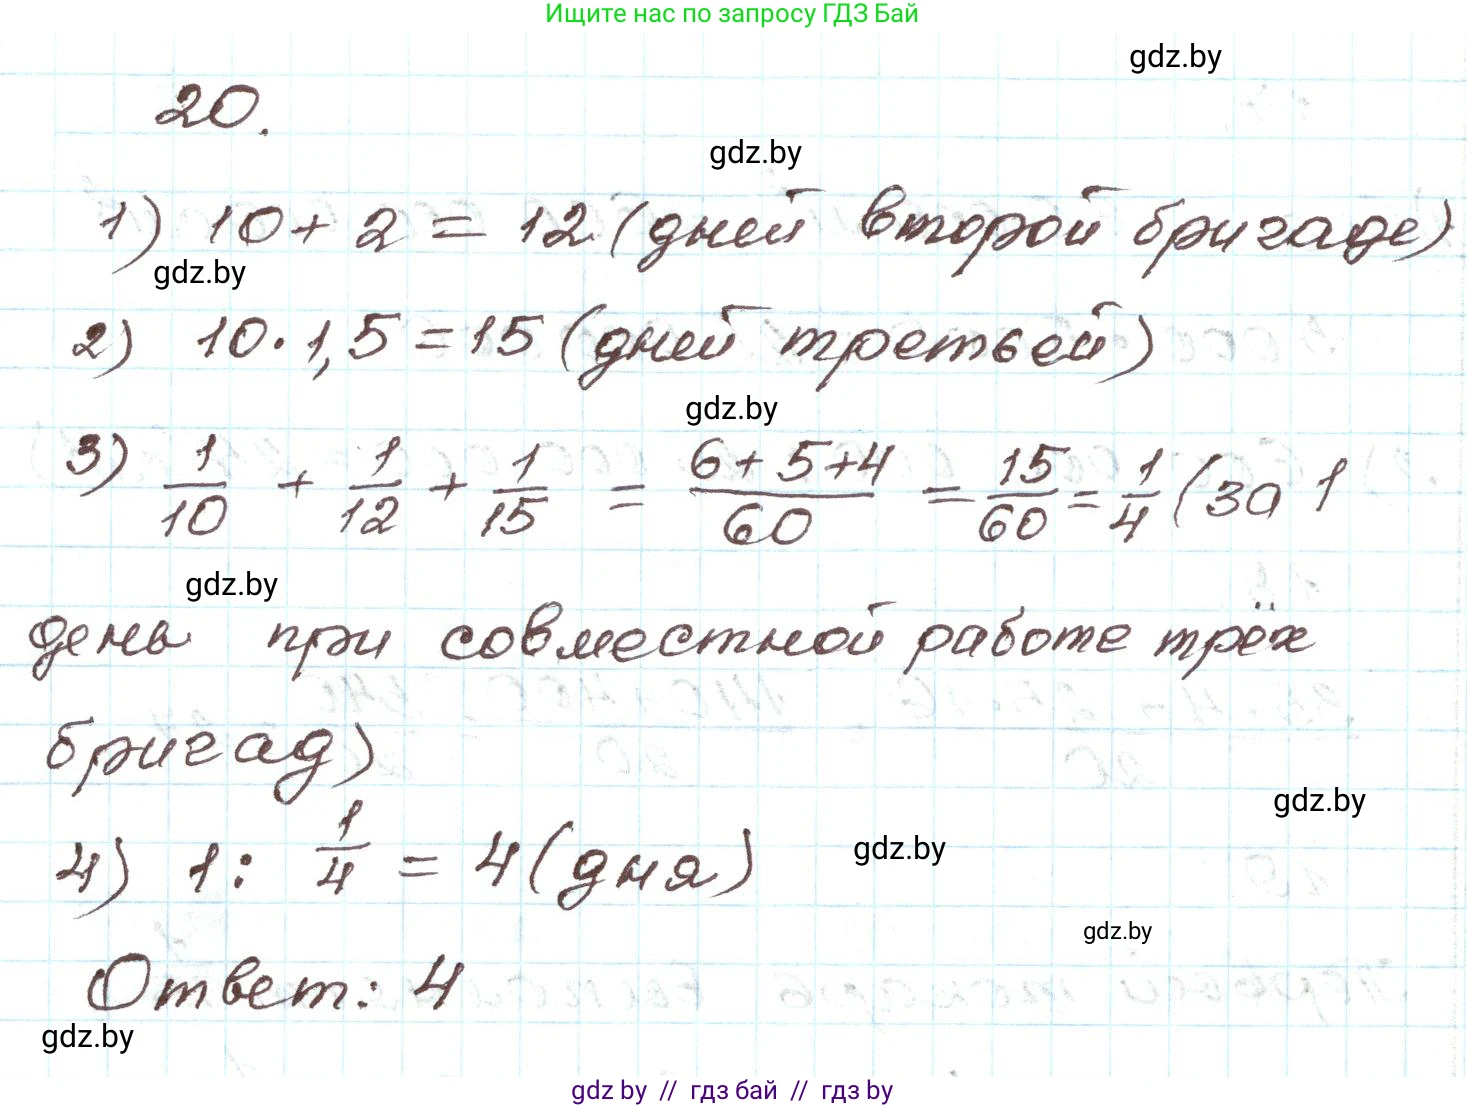 Ищите нас по запросу ГДЗ Бай
gdz.by
20.
gdz.by
1) 10 + 2 = 12 (дней второй бригаде)
gdz.by
2) 10 · 1,5 = 15 (дней третьей)
gdz.by
3) 1/10 + 1/12 + 1/15 = (6+5+4)/60 = 15/60 = 1/4 (за 1
gdz.by
день при совместной работе трёх
бригад)
gdz.by
4) 1 : 1/4 = 4 (дня)
gdz.by
gdz.by
Ответ: 4
gdz.by
gdz by // гдз бай // гдз by